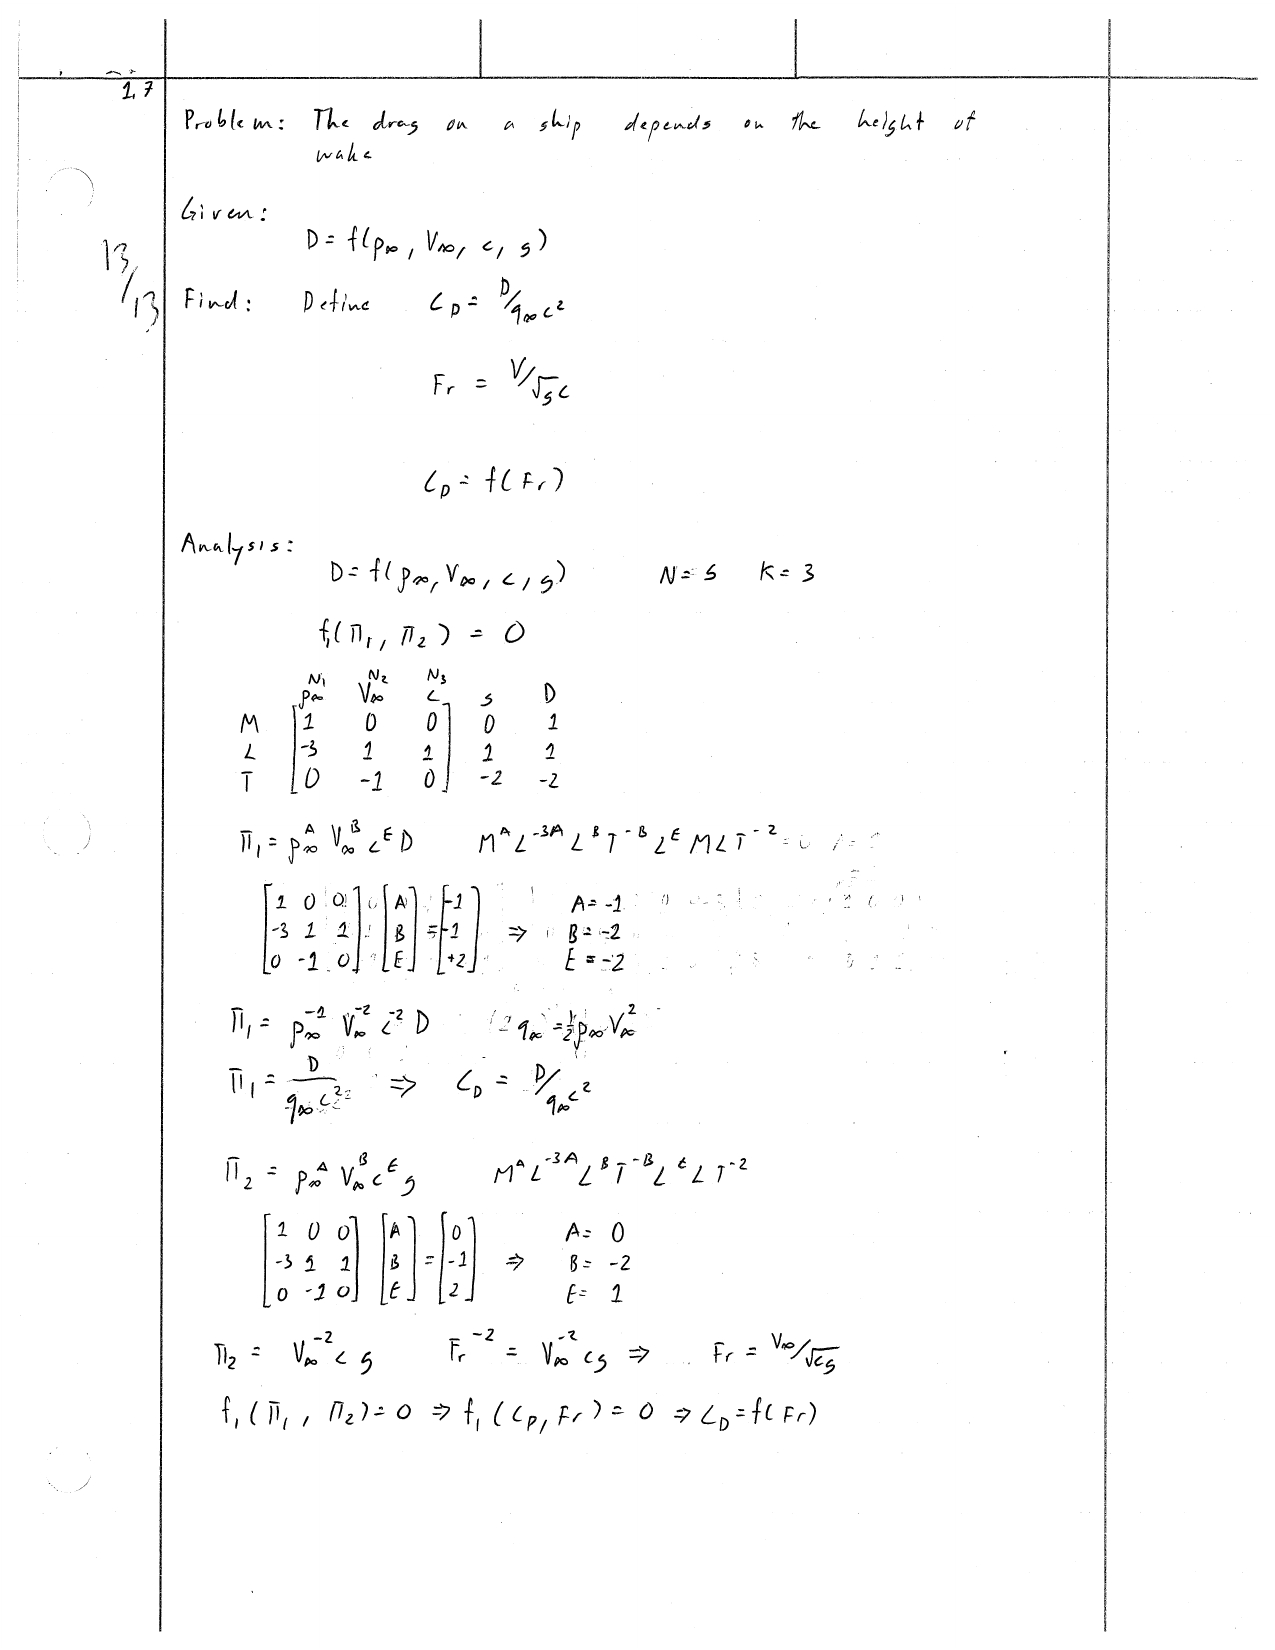 1.7
Problem: The drag on a ship depends on the height of
wake
Given:
D = f(ρ∞, V∞, c, g)
13/13
Find: Define C_D = D/q∞c²
Fr = V/√gc
C_D = f(Fr)
Analysis:
D = f(ρ∞, V∞, c, g) N = 5 K = 3
f₁(Π₁, Π₂) = 0
N₁ N₂ N₃
ρ∞ V∞ c g D
M [1 0 0] 0 1
L [-3 1 1] 1 1
T [0 -1 0] -2 -2
Π₁ = ρ∞^A V∞^B c^E D M^A L^-3A L^B T^-B L^E M L T^-2
[1 0 0] [A] [-1] A = -1
[-3 1 1] [B] = [-1] ⇒ B = -2
[0 -1 0] [E] [+2] E = -2
Π₁ = ρ∞^-1 V∞^-2 c^-2 D q∞ = ½ρ∞V∞²
Π₁ = D/q∞c² ⇒ C_D = D/q∞c²
Π₂ = ρ∞^A V∞^B c^E g M^A L^-3A L^B T^-B L^E L T^-2
[1 0 0] [A] [0] A = 0
[-3 1 1] [B] = [-1] ⇒ B = -2
[0 -1 0] [E] [2] E = 1
Π₂ = V∞^-2 c g Fr^-2 = V∞^-2 c g ⇒ Fr = V∞/√cg
f₁(Π₁, Π₂) = 0 ⇒ f₁(C_D, Fr) = 0 ⇒ C_D = f(Fr)